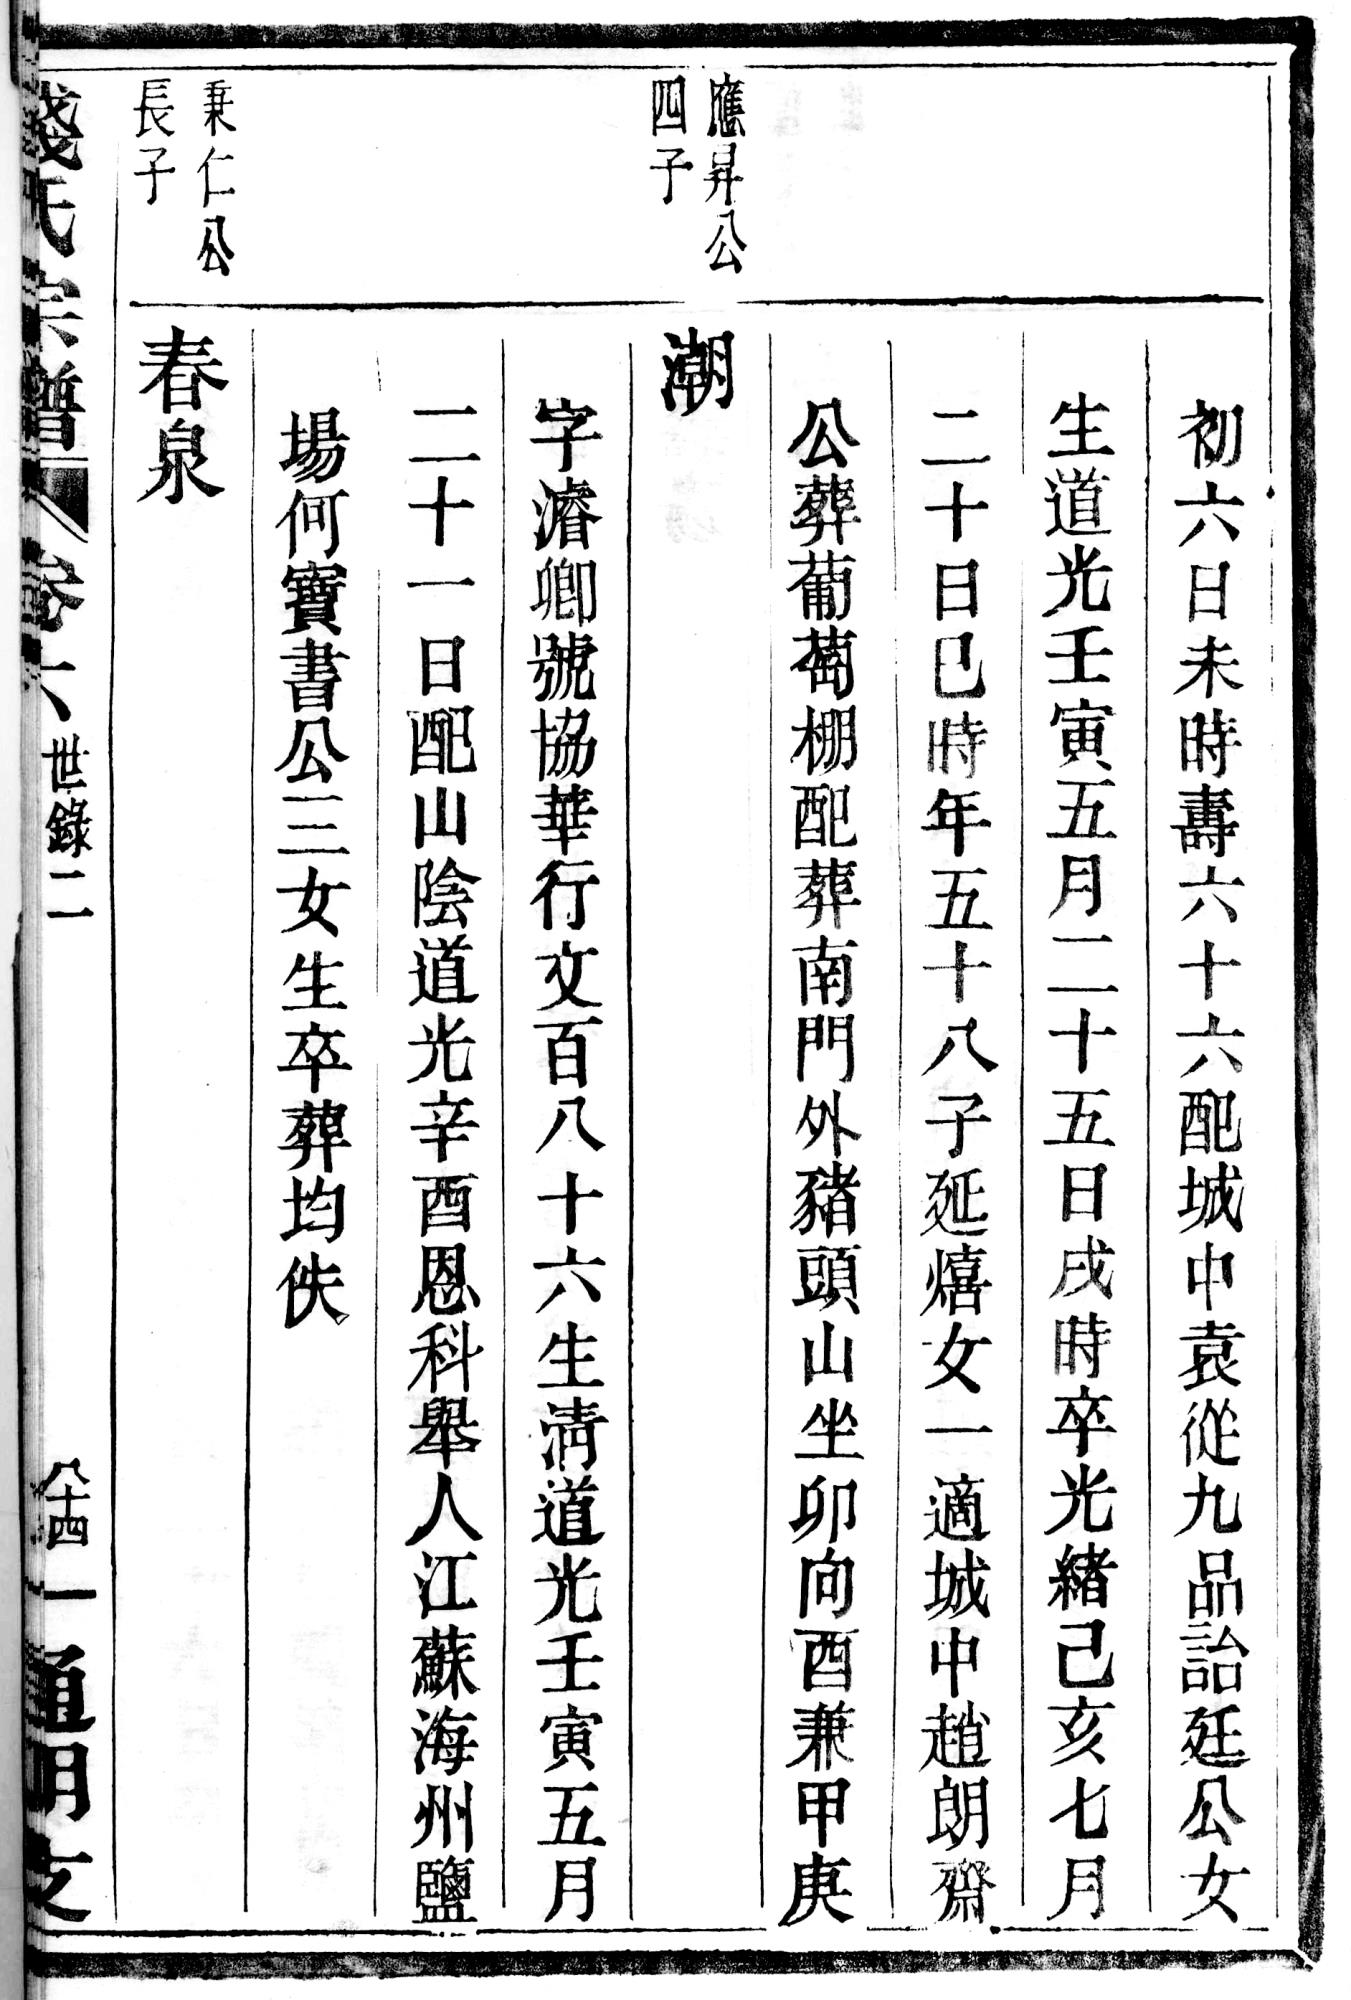 初六日未時壽六十六配城中袁從九品詒廷公女
生道光壬寅五月二十五日戌時卒光緒己亥七月
二十日巳時年五十八子延熺女一適城中趙朗齋
公葬葡萄棚配葬南門外豬頭山坐卯向酉兼甲庚
應昇公
四子
潮
字濬卿號協華行文百八十六生清道光壬寅五月
二十一日配山陰道光辛酉恩科舉人江蘇海州鹽
場何寶書公三女生卒葬均佚
秉仁公
長子
春泉
錢氏宗譜
卷六
世錄二
八十四
通明支